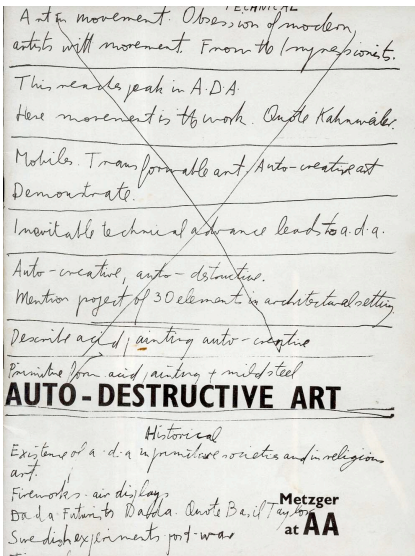 TECHNICAL
Art in movement. Obsession of modern
artists with movement. From the Impressionists.
This reaches peak in A.D.A.
Here movement is the work. Quote Kahnweiler.
Mobiles. Transformable art. Auto-creative art
Demonstrate.
Inevitable technical advance leads to a.d.a.
Auto-creative, auto-destructive.
Mention project of 30 element in architectural setting.
Describe acid painting auto-creative
Primitive form acid painting + mild steel
AUTO-DESTRUCTIVE ART
Historical
Existence of a-d-a in primitive societies and in religious
art.
Fireworks - air displays
Dada. Futurists Quote Basil Taylor
Swedish experiments post-war
Metzger
at AA